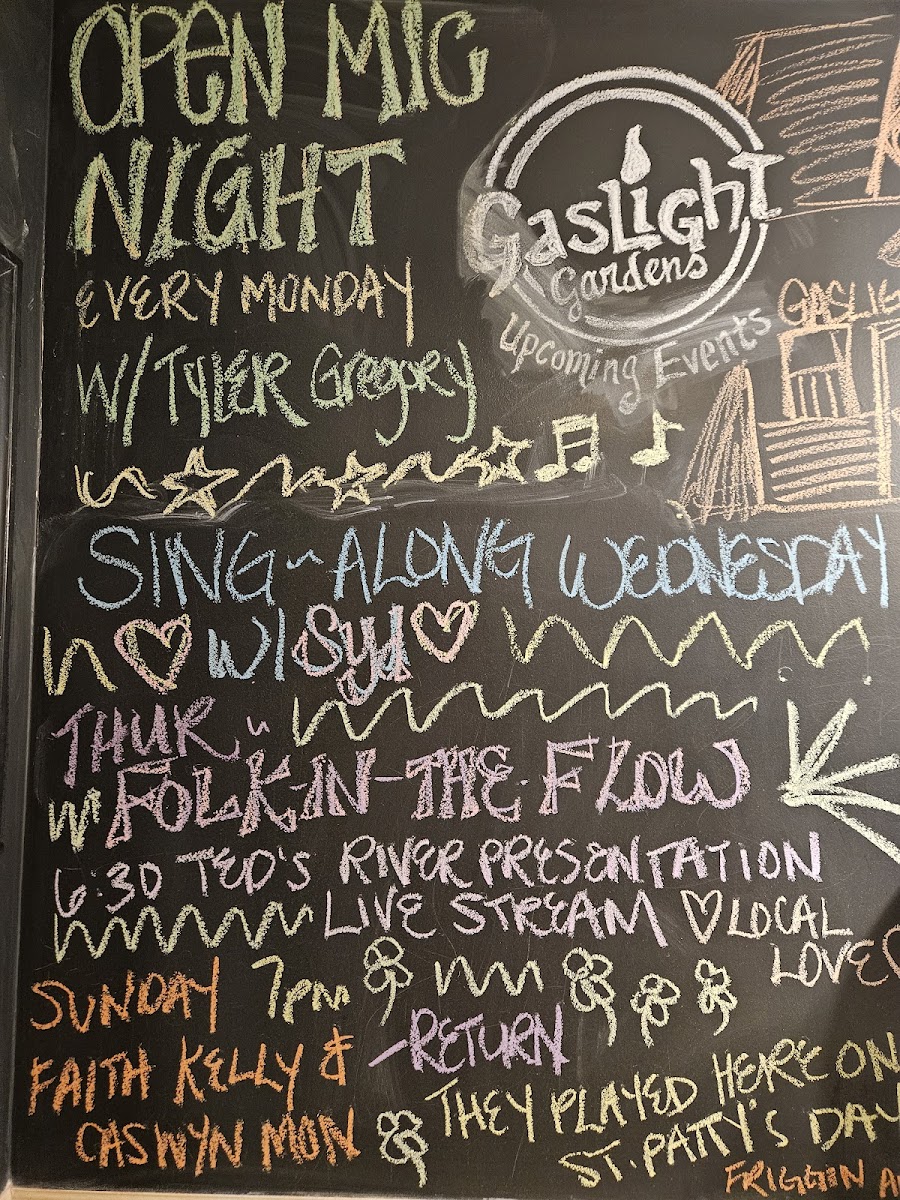 OPEN MIC
NIGHT
EVERY MONDAY
W/ TYLER Gregory
GasLight
Gardens
Upcoming Events
GASLIG
SING~ALONG WEDNESDAY
W/ Syd
THUR~
W/ FOLK-IN-THE-FLOW
6:30 TED'S RIVER PRESENTATION
LIVE STREAM LOCAL
LOVE
SUNDAY 7pm
FAITH KELLY &
CASWYN MON
-RETURN
THEY PLAYED HERE ON
ST. PATTY'S DAY
FRIGGIN A